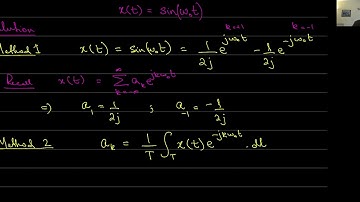 x(t) = sin(ω₀t)
lution
k=+1 k=-1
Method 1 x(t) = sin(ω₀t) = 1/2j e^{jω₀t} - 1/2j e^{-jω₀t}
Recall x(t) = ∑_{k=-∞}^{∞} a_k e^{jkω₀t}
⇒ a_1 = 1/2j ; a_{-1} = -1/2j
Method 2 a_k = 1/T ∫_T x(t) e^{-jkω₀t} . dt